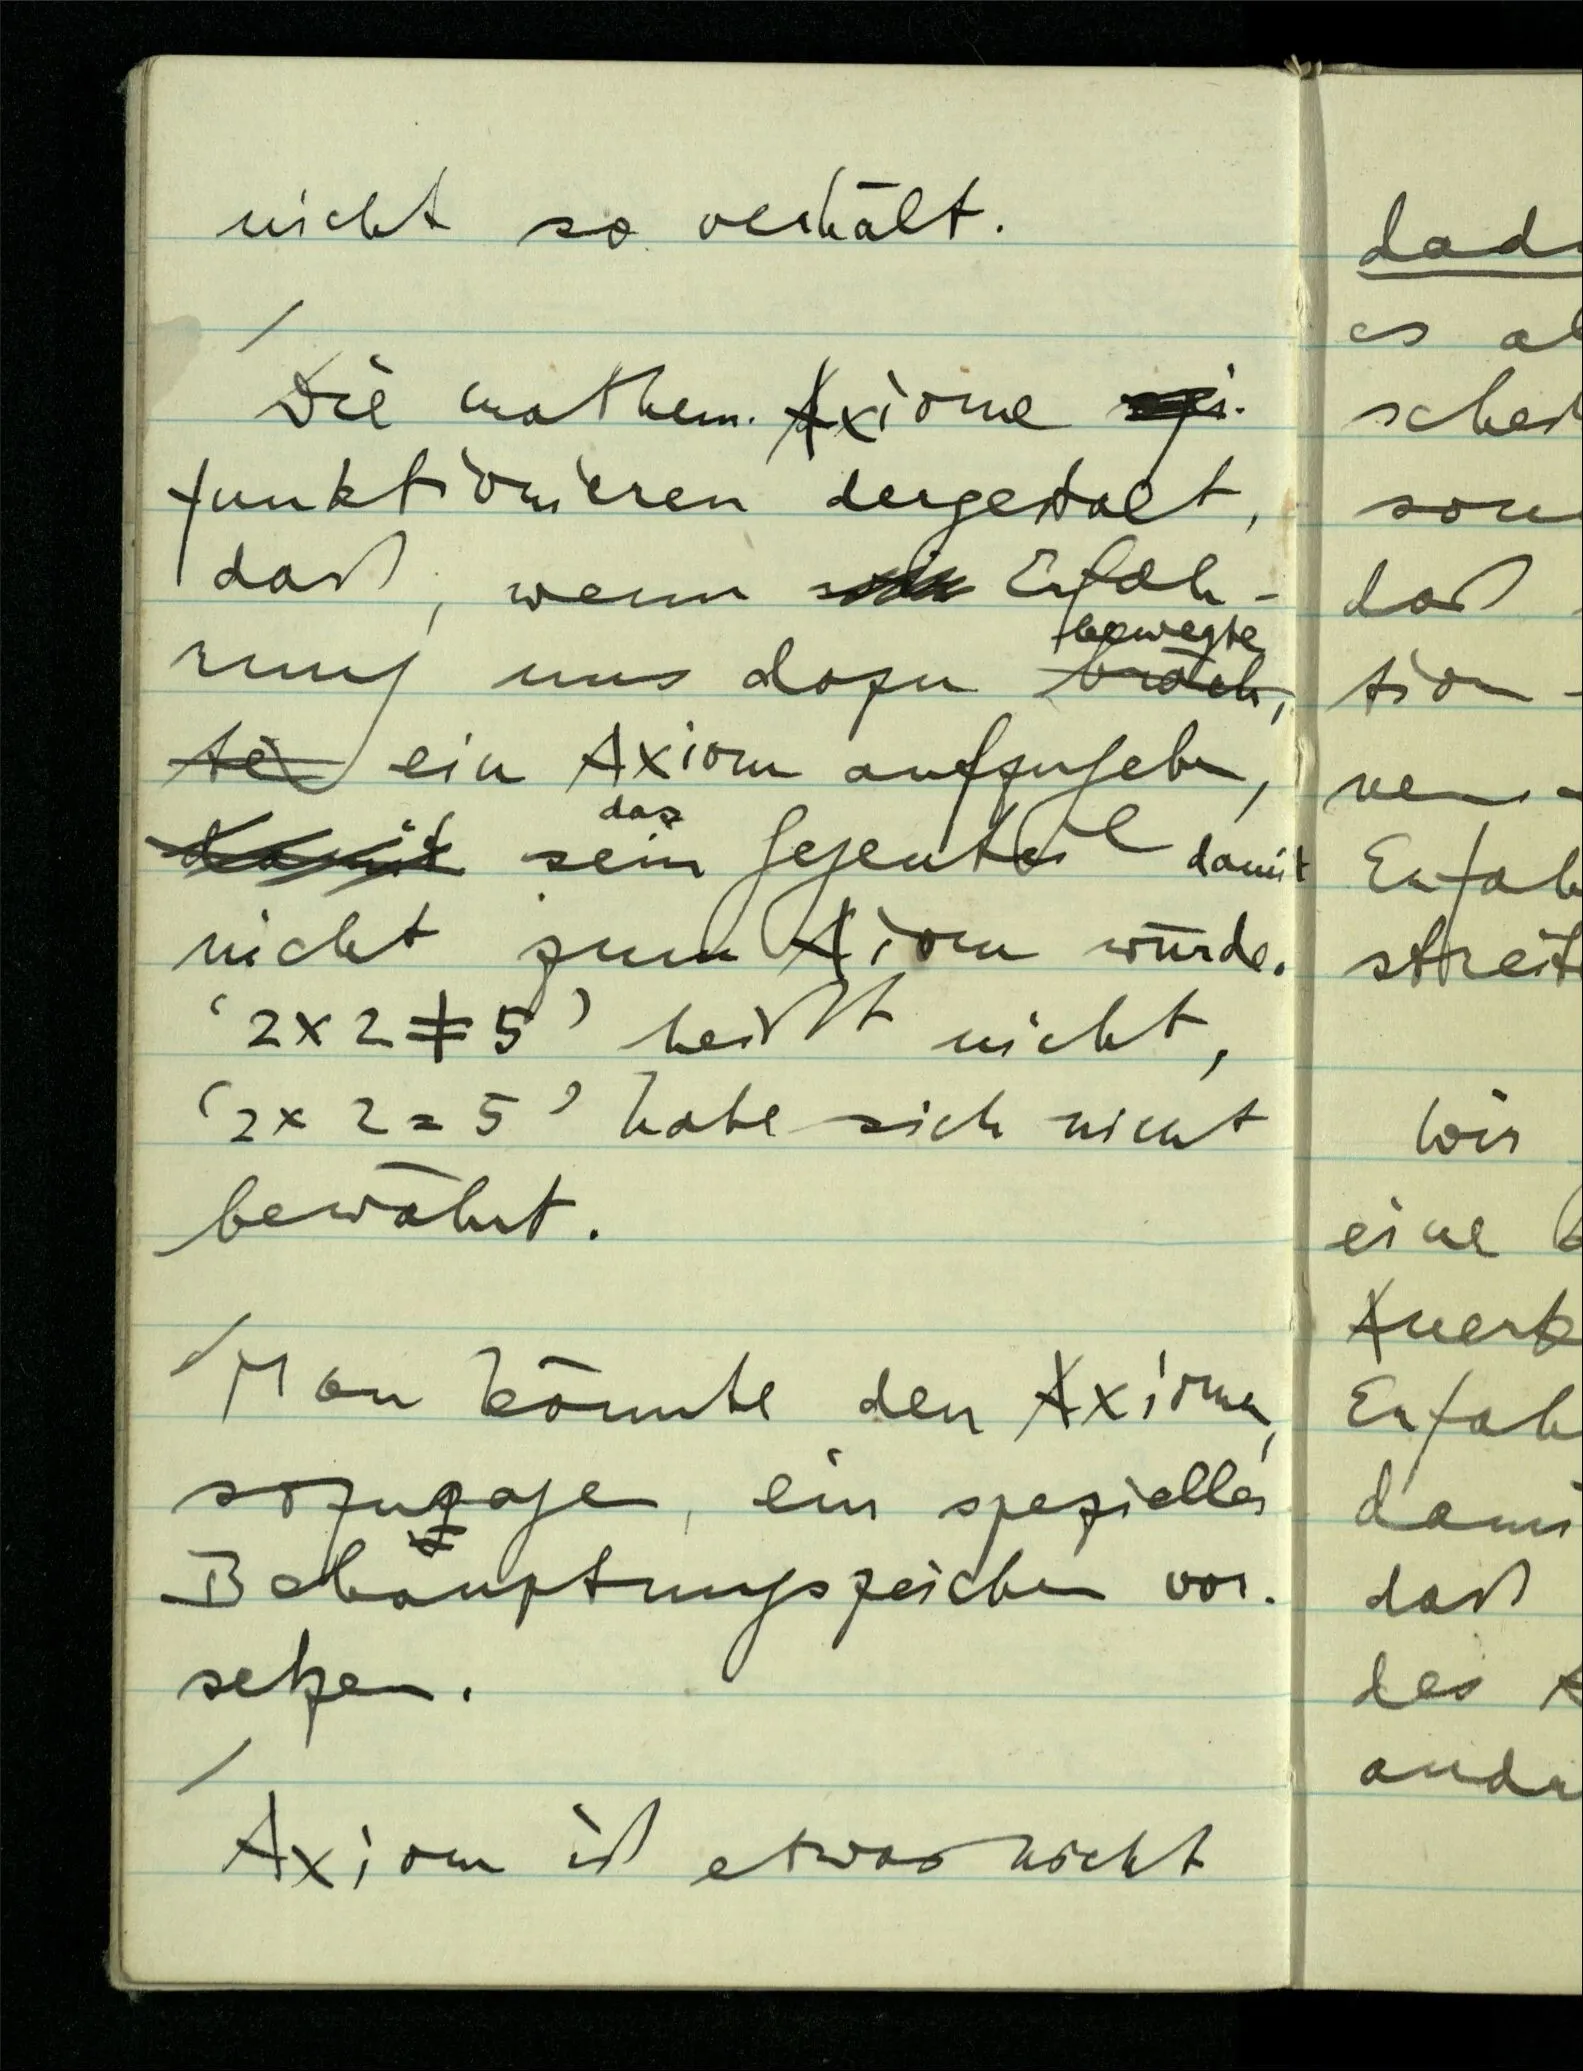 nicht so verhält.
/
Die mathem. Axiome
funktionieren dergestalt,
daß, wenn Erfah-
bewegte
rung uns dazu bräch,
te ein Axiom aufzugeben,
das
damit sein Gegenteil damit
nicht zum Axiom würde.
‘2×2≠5’ heißt nicht,
‘2×2=5’ habe sich nicht
bewährt.
/
Man könnte den Axiomen,
sozusagen, ein spezielles
Behauptungszeichen vor-
setzen.
/
Axiom ist etwas nicht
es
daß
tion
Wir
eine
daß
des